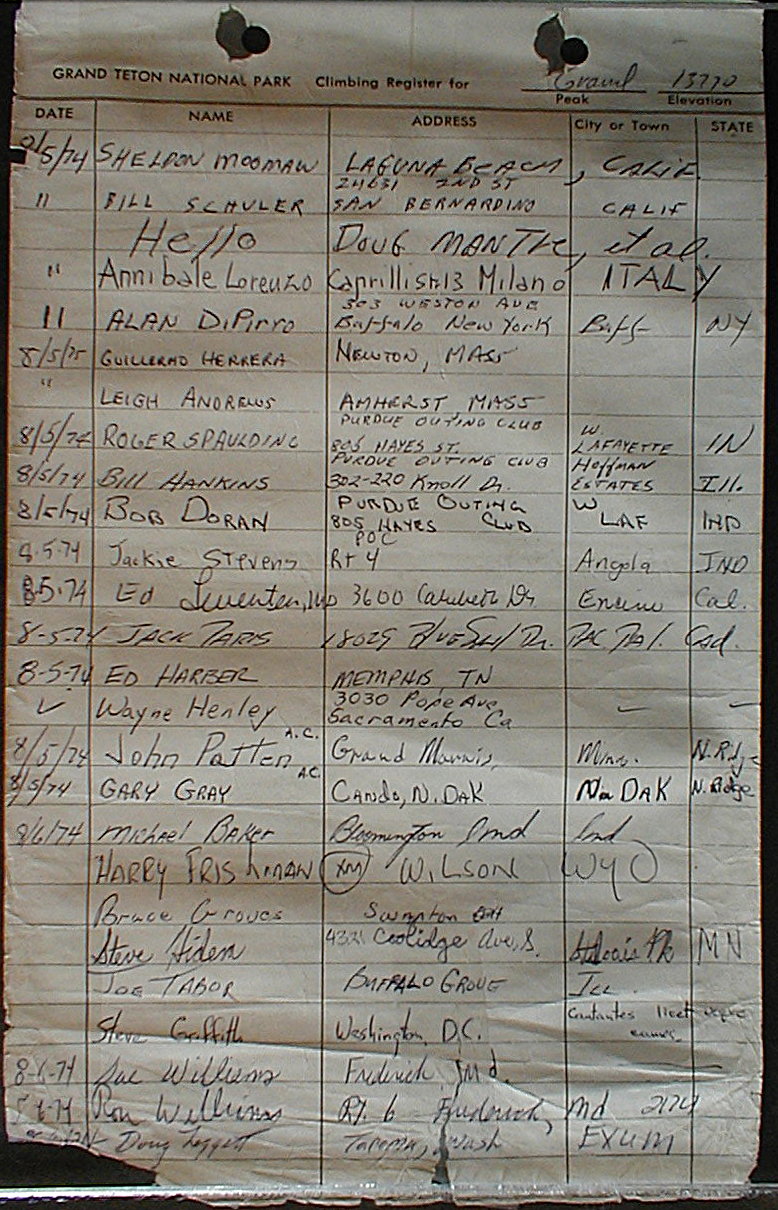 GRAND TETON NATIONAL PARK Climbing Register for Grand 13770
Peak Elevation
DATE NAME ADDRESS City or Town STATE
8/5/74 SHELDON MOOMAW LAGUNA BEACH, CALIF.
24631 2ND ST
" BILL SCHULER SAN BERNARDINO CALIF
Hello DOUG MANTLE, et al.
" Annibale Lorenzo Caprilli 13 Milano ITALY
303 WESTON AVE
" ALAN DiPirro Buffalo New York Buff NY
8/5/75 GUILLERMO HERRERA NEWTON, MASS
" LEIGH ANDREWS AMHERST MASS
PURDUE OUTING CLUB W.
8/5/74 ROGER SPAULDING 805 HAYES ST. LAFAYETTE IN
PURDUE OUTING CLUB Hoffman
8/5/74 BILL HANKINS 302-220 Knoll Dr. ESTATES Ill.
PURDUE OUTING W
8/5/74 BOB DORAN 805 HAYES CLUB LAF IND
POC
8-5-74 Jackie Stevens Rt 4 Angola IND
8-5-74 Ed 3600 Dr. Encino Cal.
8-5-74 JACK PARIS 18029 Blue Sail Dr. PAC. PAL. Cal.
8-5-74 ED HARBER MEMPHIS, TN
✓ Wayne Henley 3030 Pope Ave — —
Sacramento Ca
A.C.
8/5/74 John Patten Grand Marais, Minn. N. Ridge
A.C.
8/5/74 GARY GRAY CANDO, N. DAK No DAK N. Ridge
8/6/74 Michael Baker Bloomington Ind Ind
HARRY FRISHMAN XM WILSON WYO
Bruce Groves
Steve 4321 Coolidge Ave, S. St Louis Pk MN
JOE TABOR BUFFALO GROVE ILL.
Steve Griffith Washington, D.C.
8-6-74 Sue Williams Frederick Md.
8-6-74 Ron Williams Rt. 6 Frederick, Md
Doug Leggett Tacoma, Wash EXUM